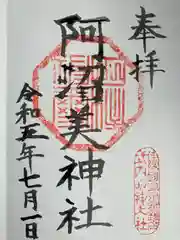 奉拝
阿沼美神社
令和五年七月一日